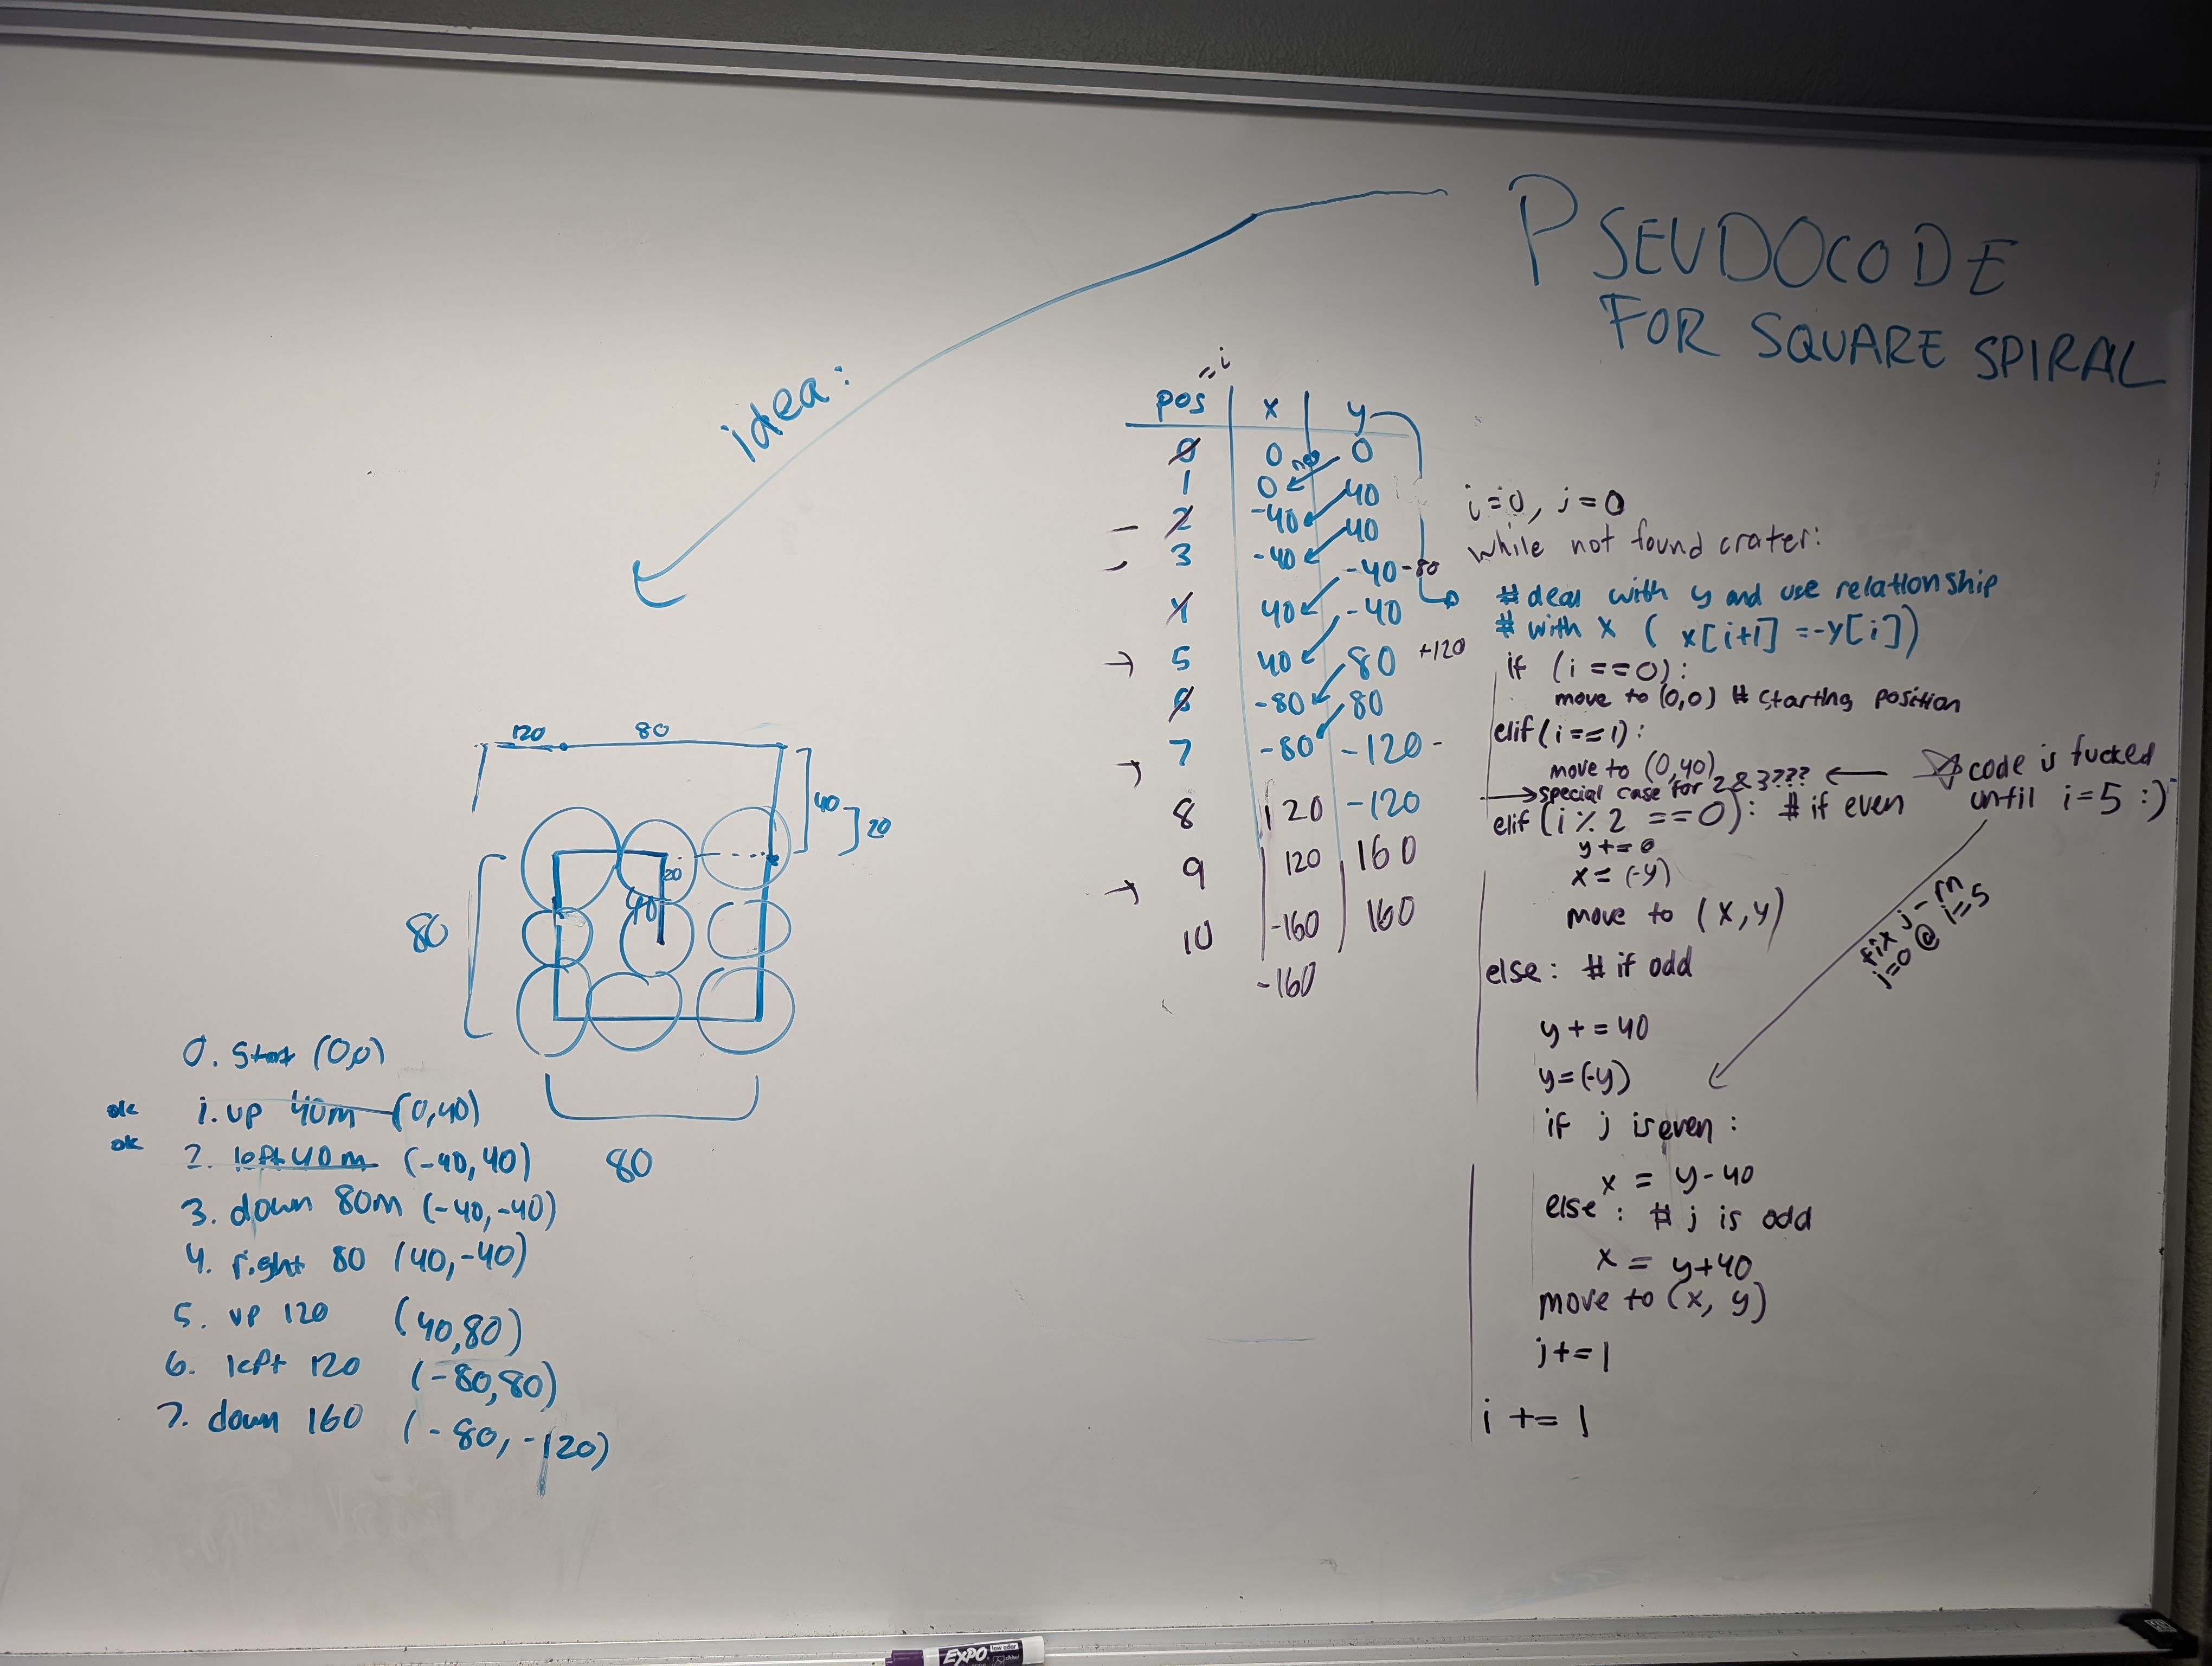 PSEUDOCODE
FOR SQUARE SPIRAL
idea:
= i
pos x y
0 0 0
no
1 0 40
2 -40 40
3 -40 -40 -80
4 40 -40
5 40 80 +120
6 -80 80
7 -80 -120 -
8 120 -120
9 120 160
10 -160 160
-160
i=0, j=0
while not found crater:
# deal with y and use relationship
# with x ( x[i+1] =-y[i])
if (i ==0):
move to (0,0) # starting position
elif(i==1):
move to (0,40)
special case for 2 & 3????
code is fucked
until i=5 :)
elif(i % 2 ==0): # if even
y += 0
x = (-y)
move to (x,y)
else: # if odd
fix j-rn
j=0 @ i=5
y += 40
y=(-y)
if j is even:
x = y-40
else : # j is odd
x = y+40
move to (x, y)
j+=1
i += 1
120 80
40
20
20
40
80
80
0. Start (0,0)
ok 1. up 40m (0,40)
ok 2. left 40m (-40,40)
3. down 80m (-40,-40)
4. right 80 (40,-40)
5. up 120 (40,80)
6. left 120 (-80,80)
7. down 160 (-80,-120)
EXPO
low odor